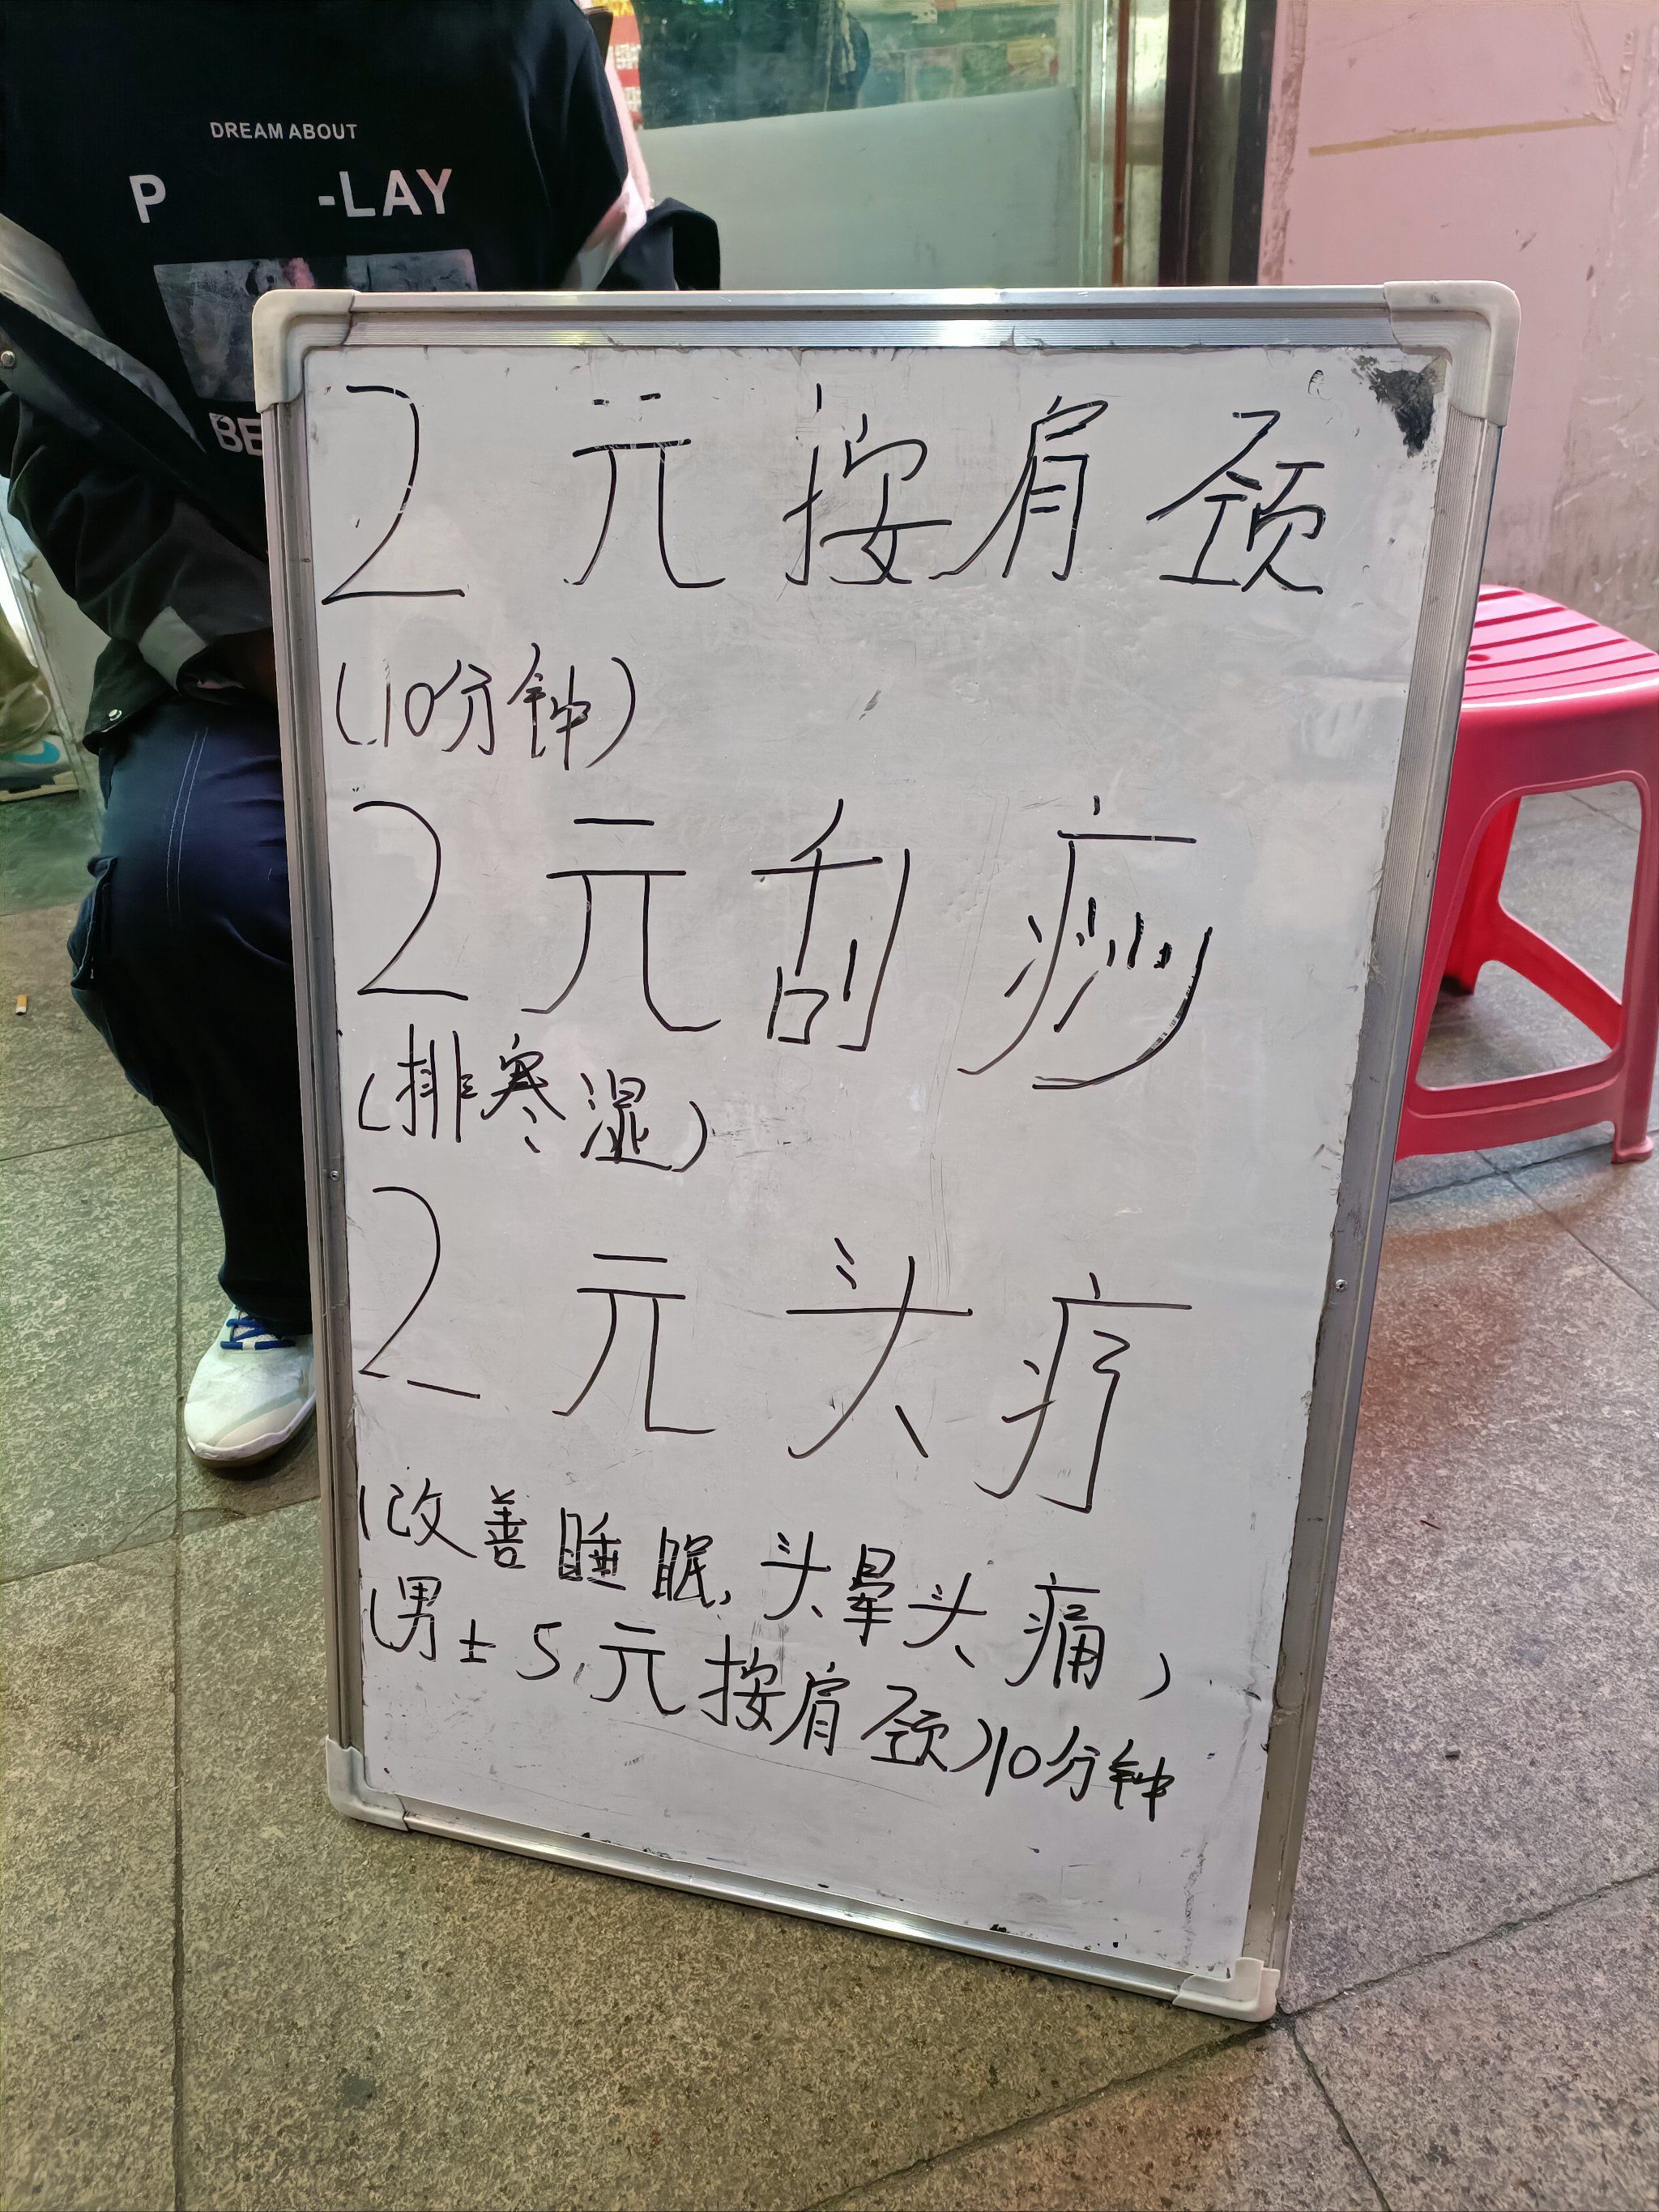 DREAM ABOUT
P -LAY
BE
2元按肩颈
(10分钟)
2元刮痧
(排寒湿)
2元头疗
(改善睡眠,头晕头痛)
(男士5元按肩颈)10分钟